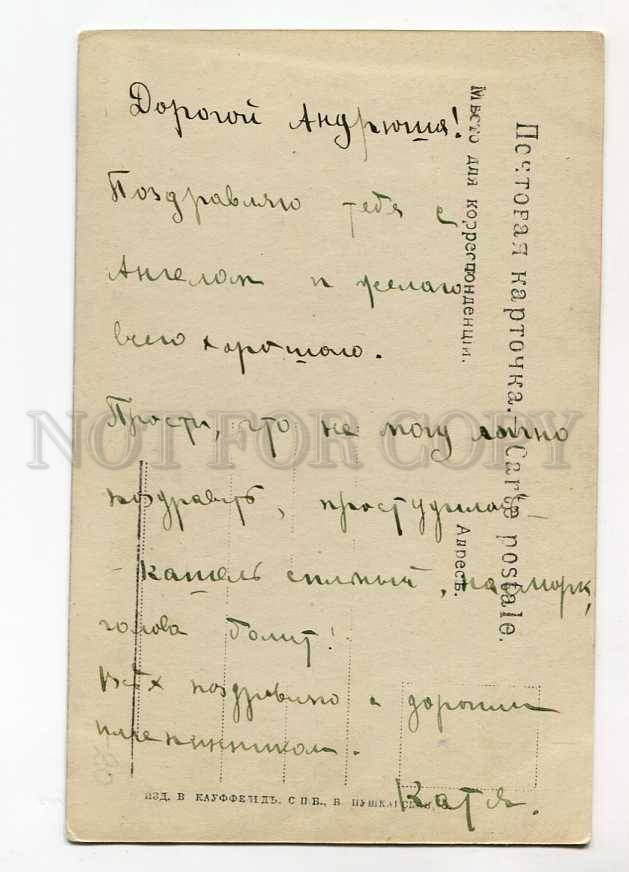 Дорогой Андрюша!
Поздравляю тебя с
Ангелом и желаю
всего хорошого.
Прости, что не могу лично
поздравить, простудилась –
кашель сильный, насморк,
голова болит!
Всѣх поздравляю с дорогим
именинником.
Катя.
Почтовая карточка. – Carte postale.
Мѣсто для корреспонденціи.
Адресъ.
ИЗД. В КАУФФЕЛЬДЪ. С П.Б., Б. ПУШКАРСКАЯ
NOT FOR COPY